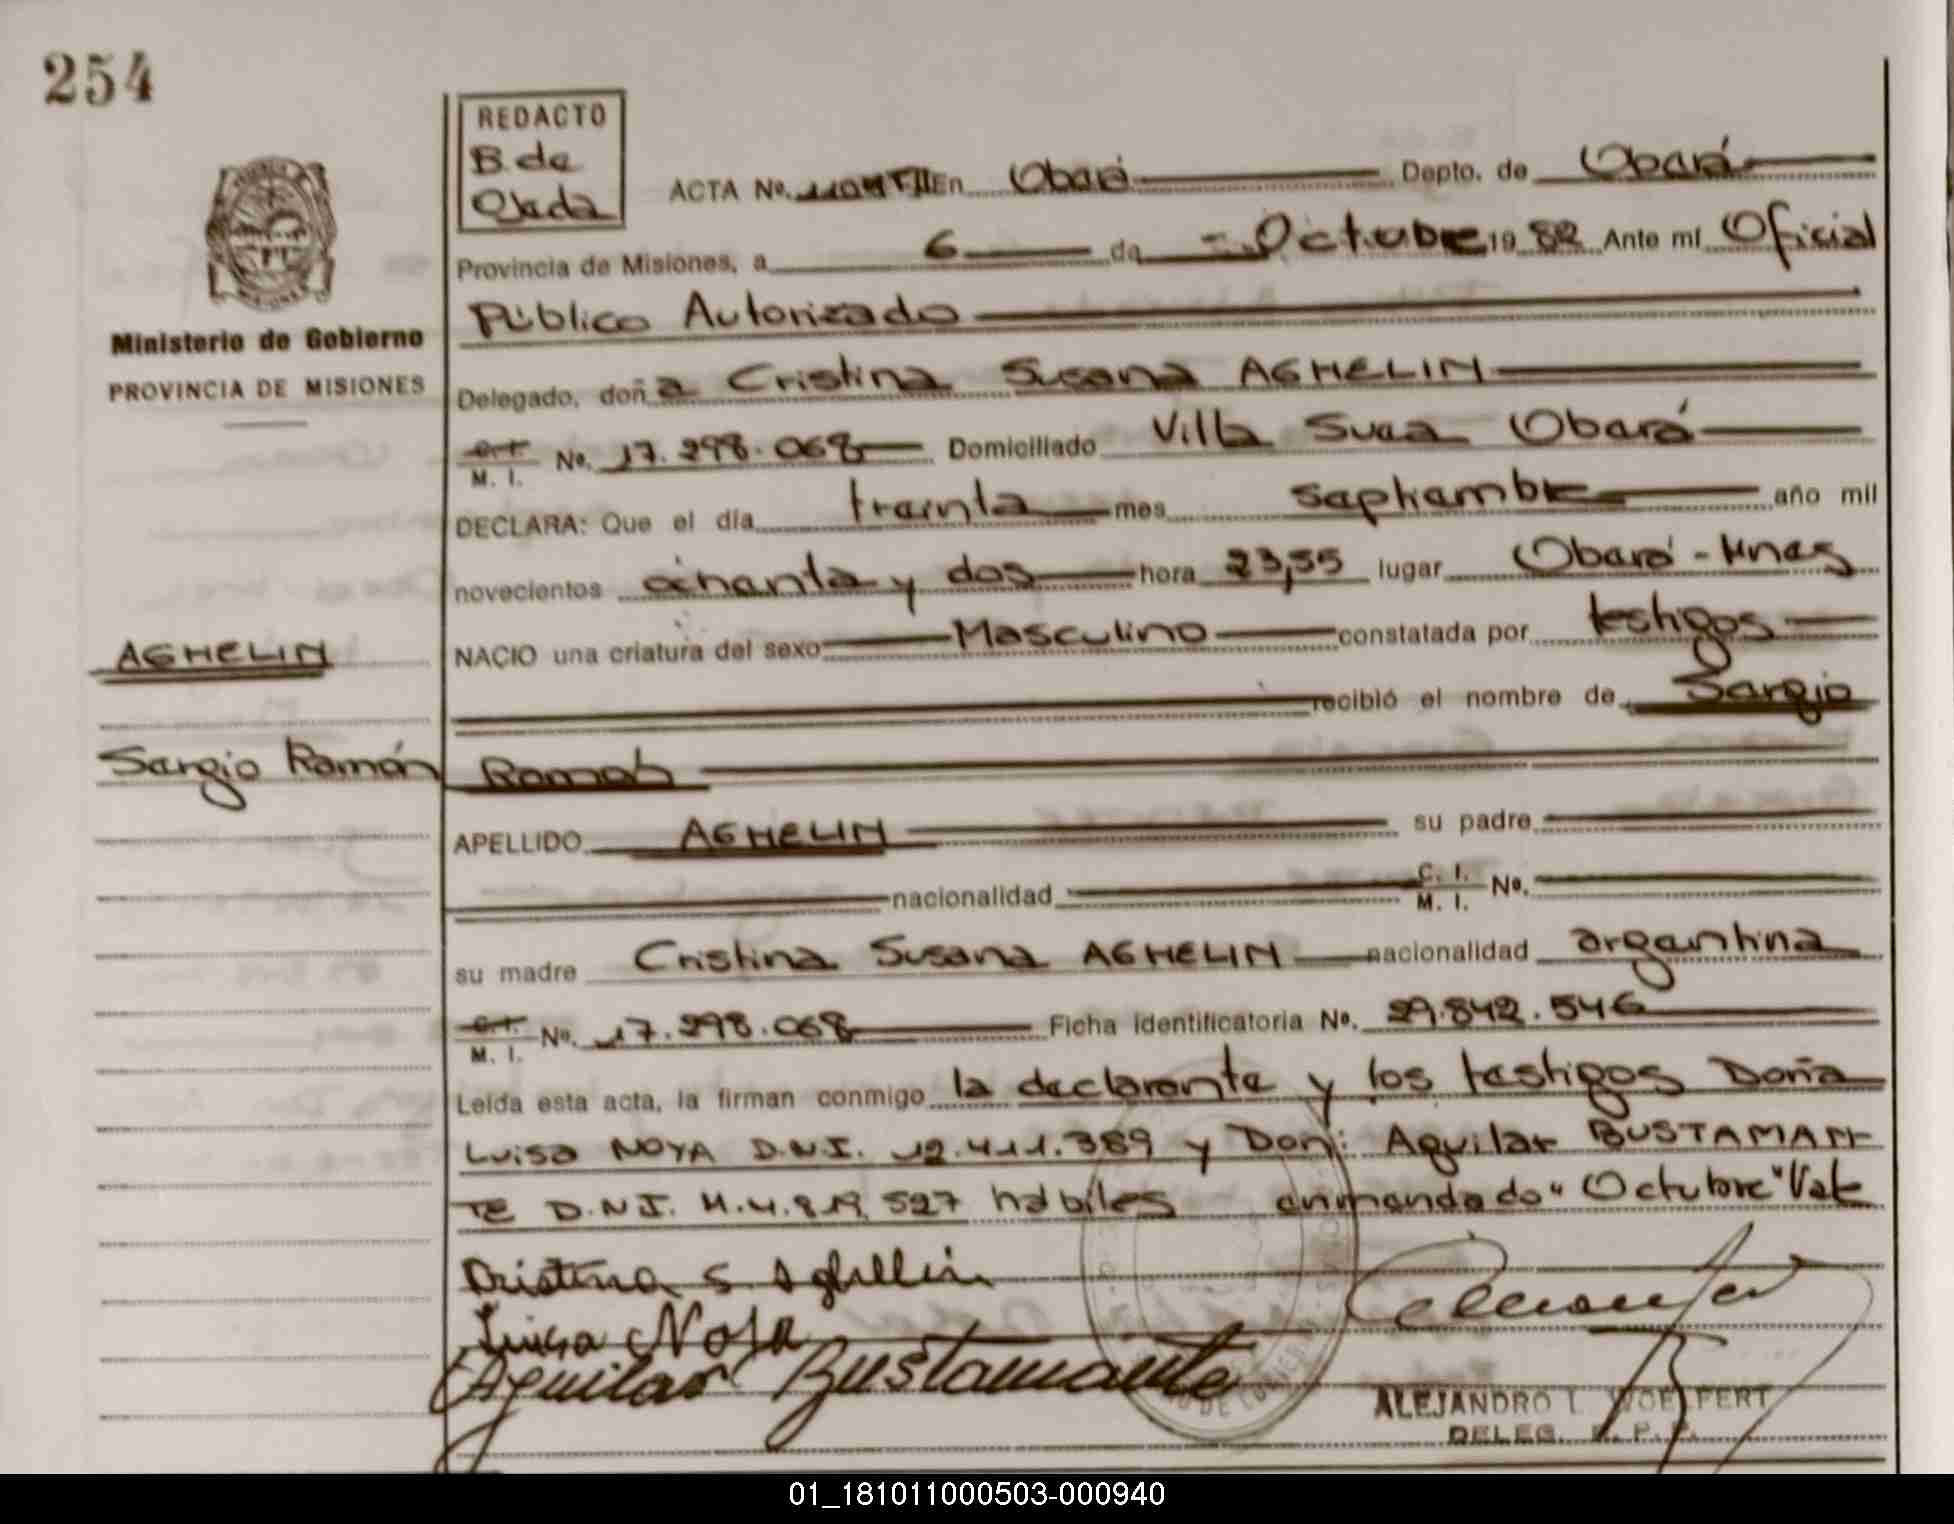 254
REDACTO
B. de
Ojeda
ACTA No. 1104 T II En Oberá Depto. de Oberá
Provincia de Misiones, a 6 de Octubre 19 82 Ante mí Oficial
Público Autorizado
Ministerio de Gobierno
PROVINCIA DE MISIONES
Delegado, doña Cristina Susana AGHELIN
C.I. M. I. No. 17.298.068 Domiciliado Villa Svea Oberá
DECLARA: Que el día treinta mes septiembre año mil
novecientos ochenta y dos hora 23,55 lugar Oberá - Mnes
NACIO una criatura del sexo Masculino constatada por testigos
AGHELIN
recibió el nombre de Sergio
Sergio Ramón
Ramón
APELLIDO AGHELIN su padre
nacionalidad C. I. M. I. No.
su madre Cristina Susana AGHELIN nacionalidad argentina
C.I. M. I. No. 17.298.068 Ficha identificatoria No. 29.842.546
Leída esta acta, la firman conmigo la declarante y los testigos Doña
Luisa NOYA D.N.I. 12.411.389 y Don: Aguilar BUSTAMAN-
TE D.N.I. M.4.819.527 hábiles enmendado "Octubre" Vale
Cristina S Aghellin
Luisa Noya
Aguilar Bustamante
ALEJANDRO I. WOELFERT
DELEG. R. P. P.
01_181011000503-000940